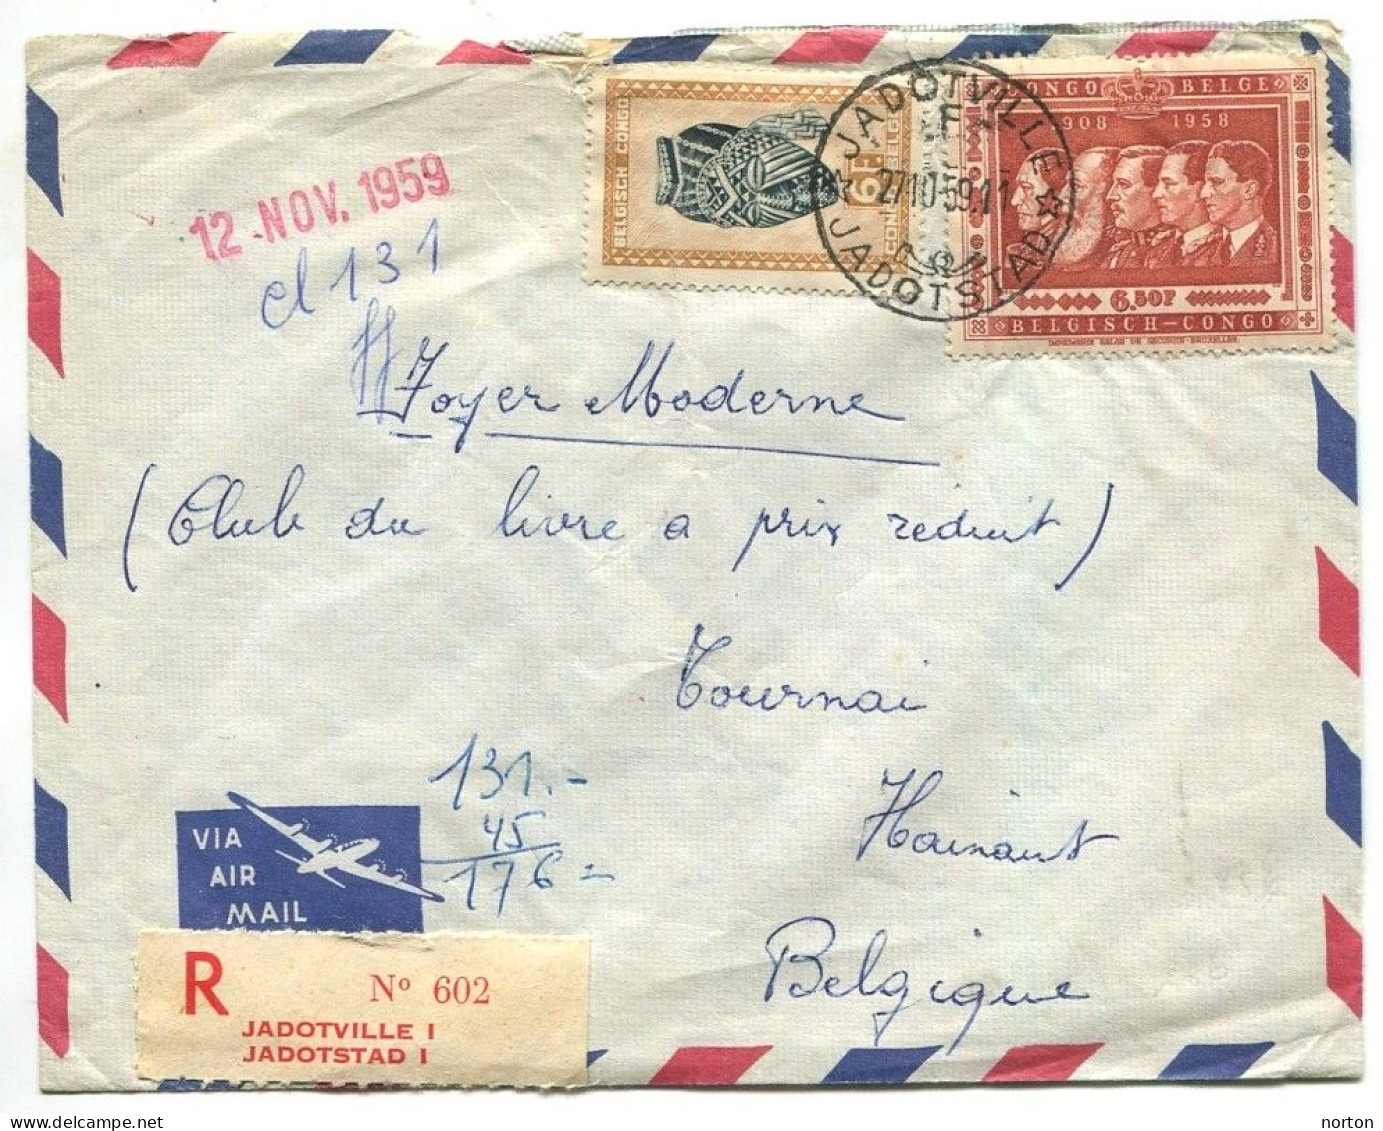 12 NOV. 1959
cl 131
BELGISCH CONGO
6F.
CONGO BELGE
JADOTVILLE
27.10.59.11
JADOTSTAD
CONGO BELGE
1908 1958
6.50F
BELGISCH-CONGO
Foyer Moderne
(Club du livre a prix reduit)
Tournai
Hainaut
Belgique
131.-
45
176=
VIA
AIR
MAIL
R No 602
JADOTVILLE I
JADOTSTAD I
norton